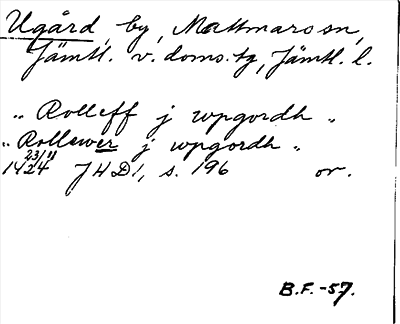 Ugård, by, Mattmars sn,
Jämtl. v. doms. tg, Jämtl. l.
" Rolleff j vpgordh "
" Rollewer j vpgordh "
23/11
1424 JHD1, s. 196 or.
B.F.-57.